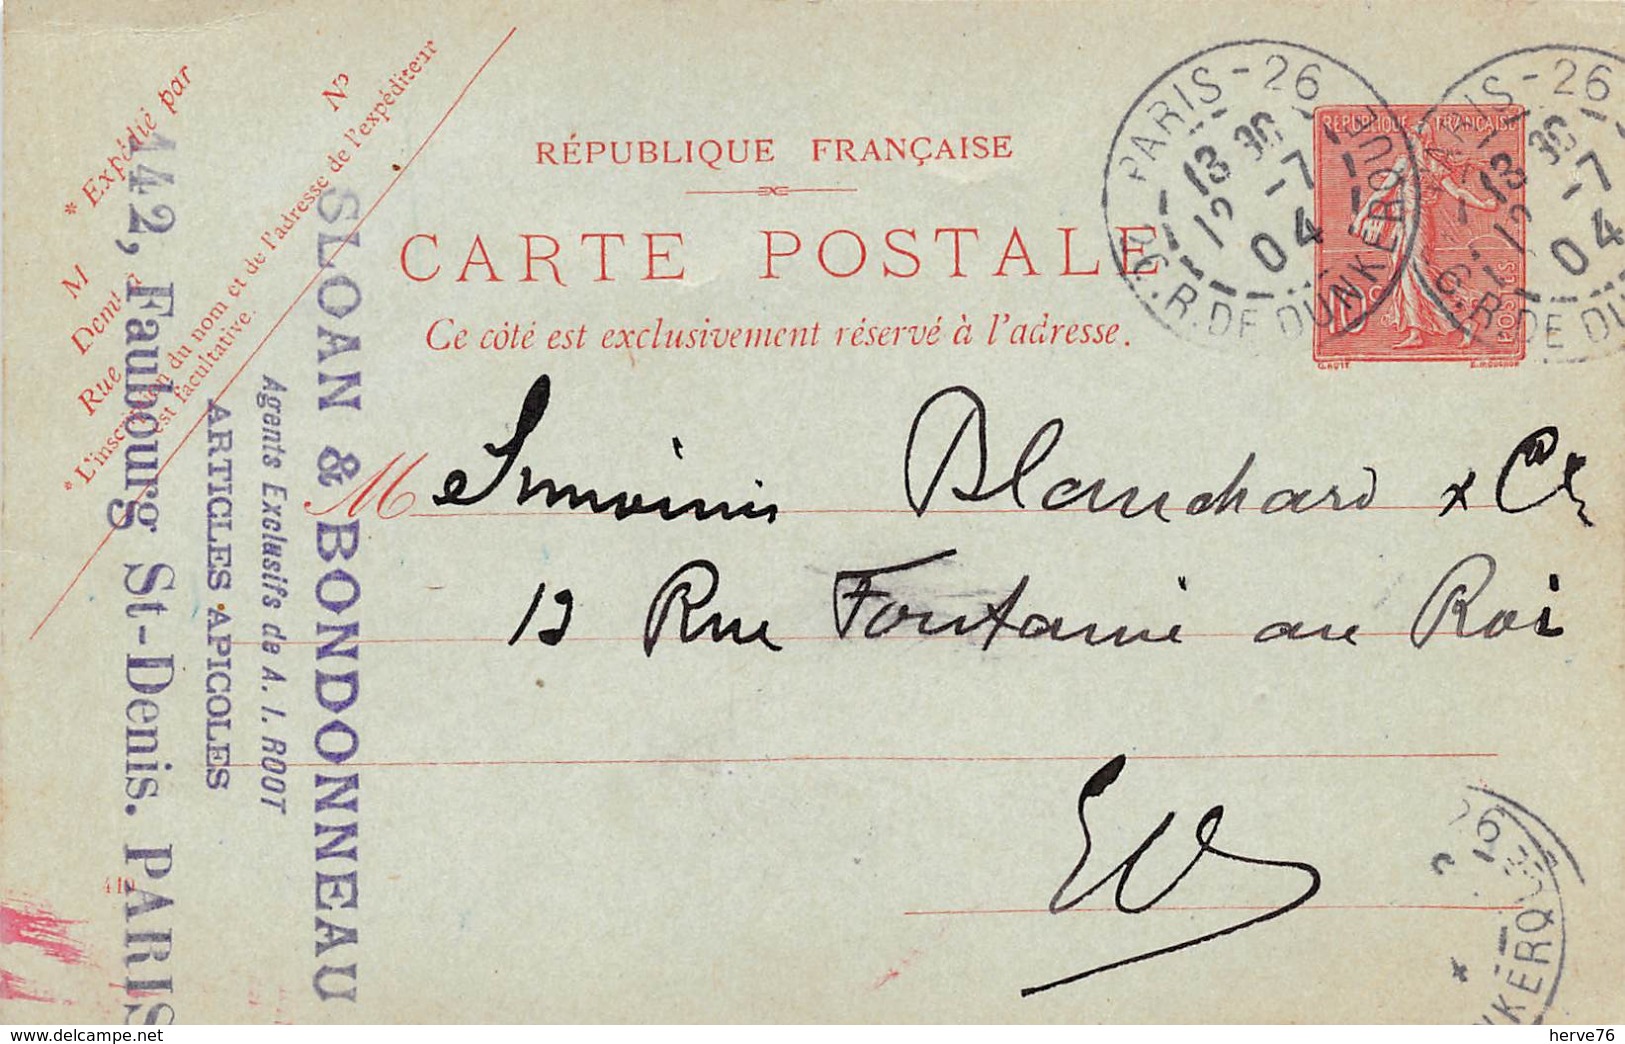 * Expédié par
M
Demt à
Rue
No
* L'inscription du nom et de l'adresse de l'expéditeur
est facultative.
142, Faubourg St-Denis. PARIS
ARTICLES APICOLES
Agents Exclusifs de A. I. ROOT
SLOAN & BONDONNEAU
RÉPUBLIQUE FRANÇAISE
CARTE POSTALE
Ce côté est exclusivement réservé à l'adresse.
PARIS - 26
13 30
12 -7
04
R. DE DUNKERQUE
REPUBLIQUE FRANÇAISE
10c
POSTES
PARIS - 26
13 30
12 -7
04
R. DE DU
M Blanchard & Cie
13 Rue Fontaine au Roi
EV
26
NKERQUE
herve76